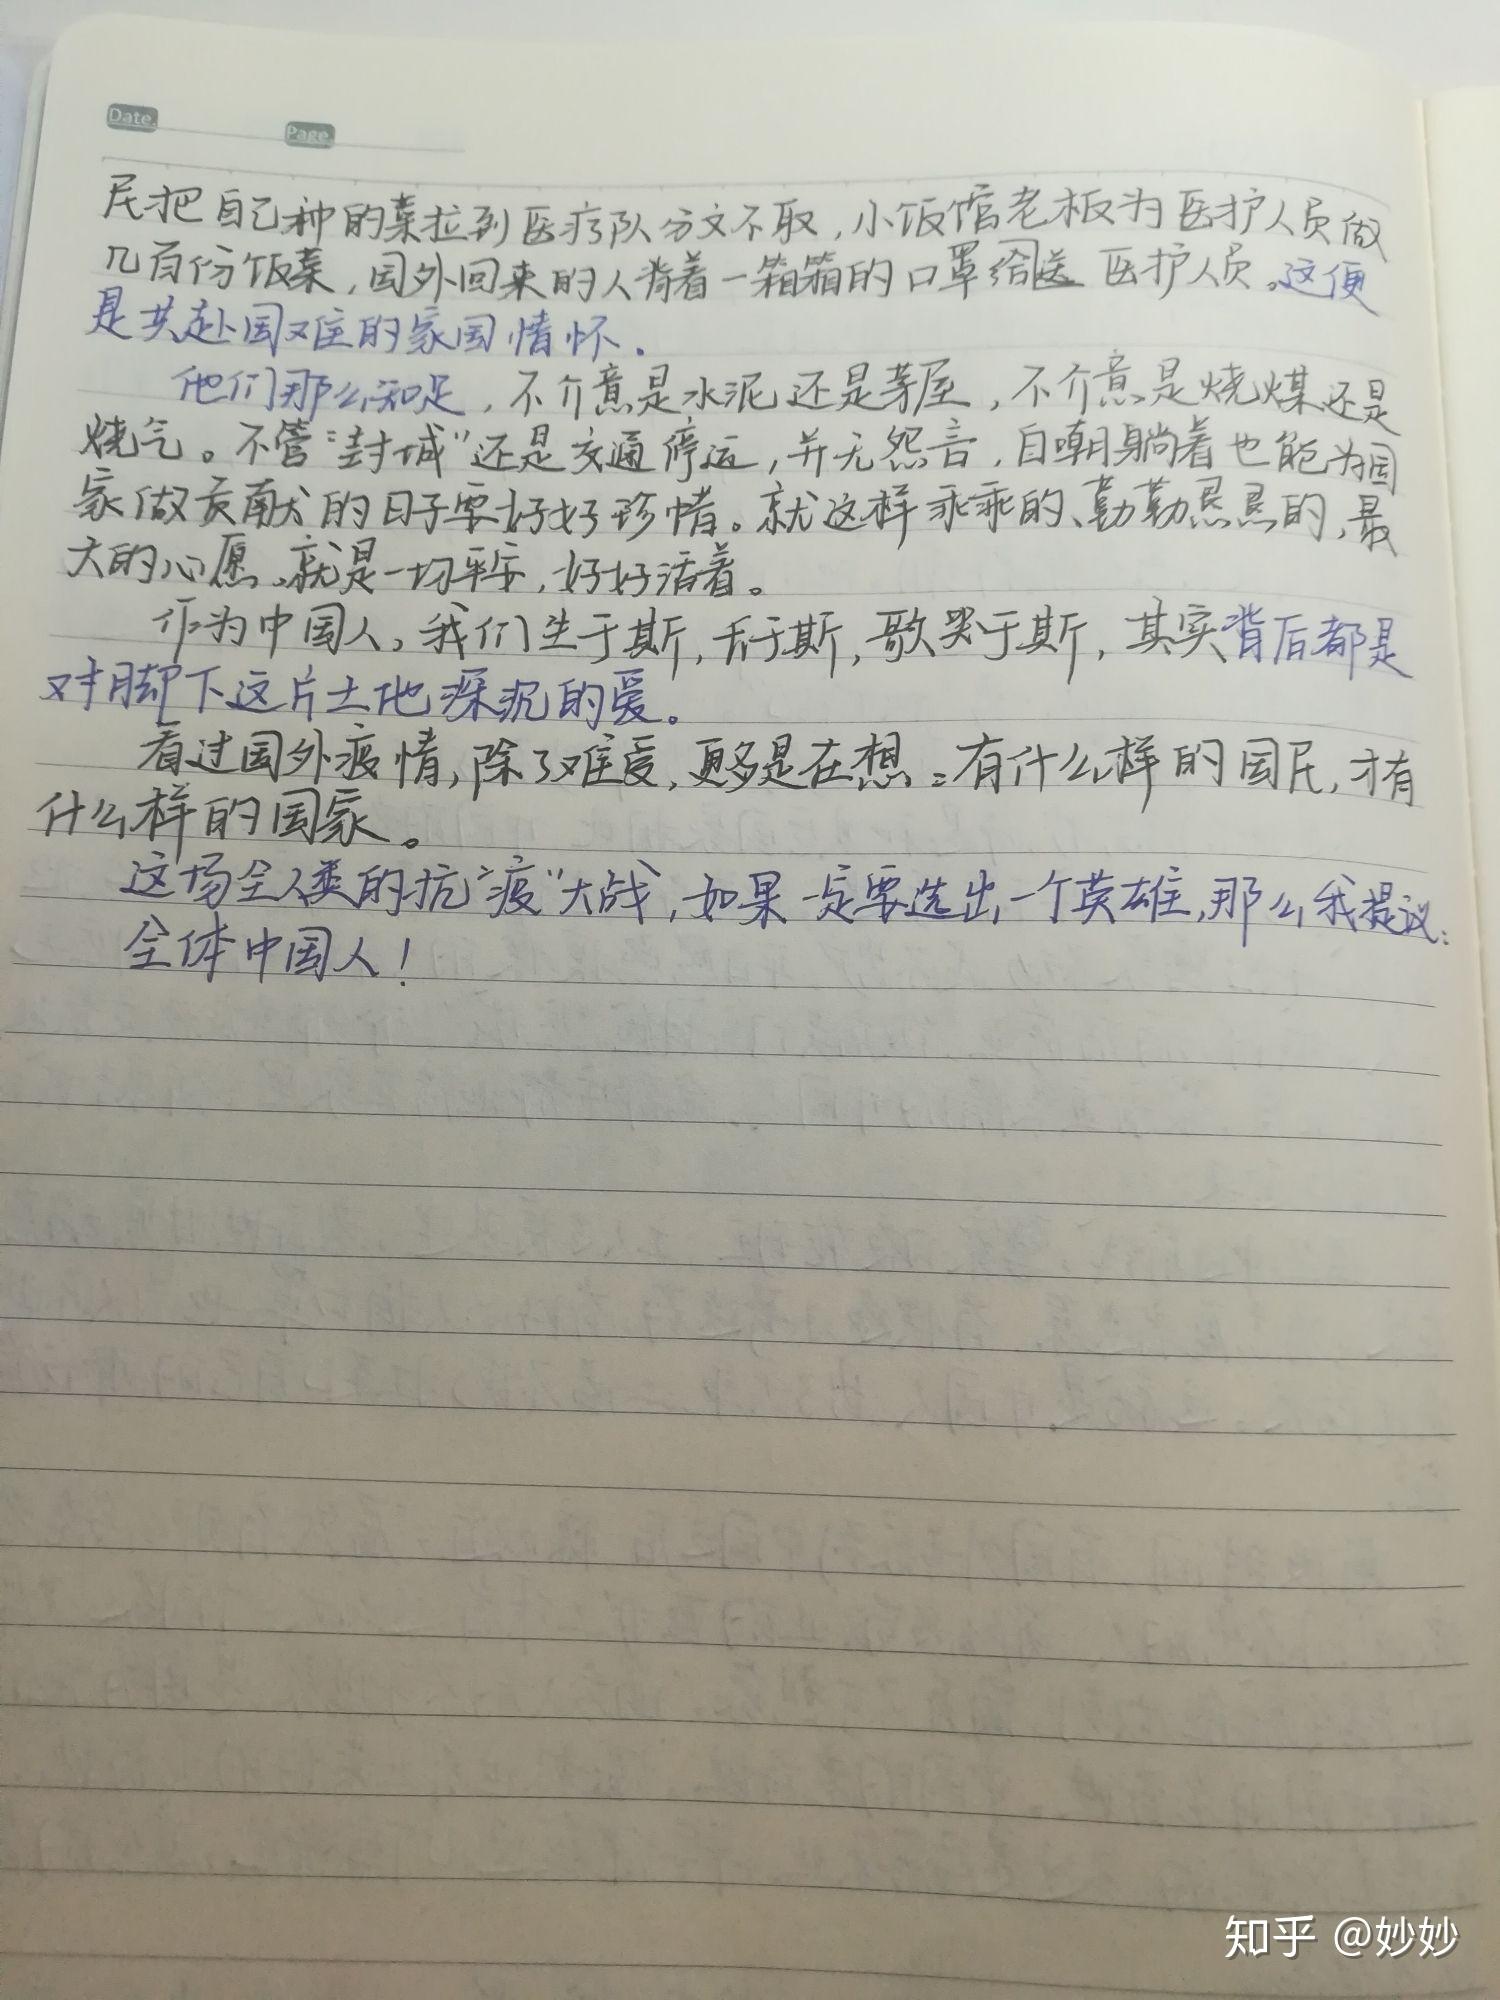 Date.
Page.
民把自己种的菜拉到医疗队分文不取,小饭馆老板为医护人员做
几百份饭菜,国外回来的人背着一箱箱的口罩给送医护人员。这便
是共赴国难的家国情怀.
他们那么知足,不介意是水泥还是茅屋,不介意是烧煤还是
烧气。不管“封城”还是交通停运,并无怨言,自嘲躺着也能为国
家做贡献的日子要好好珍惜。就这样乖乖的、勤勤恳恳的,最
大的心愿、就是一切平安,好好活着。
作为中国人,我们生于斯,长于斯,歌哭于斯,其实背后都是
对脚下这片土地深沉的爱。
看过国外疫情,除了难受,更多是在想:有什么样的国民,才有
什么样的国家。
这场全人类的抗“疫”大战,如果一定要选出一个英雄,那么我提议:
全体中国人!
知乎 @妙妙